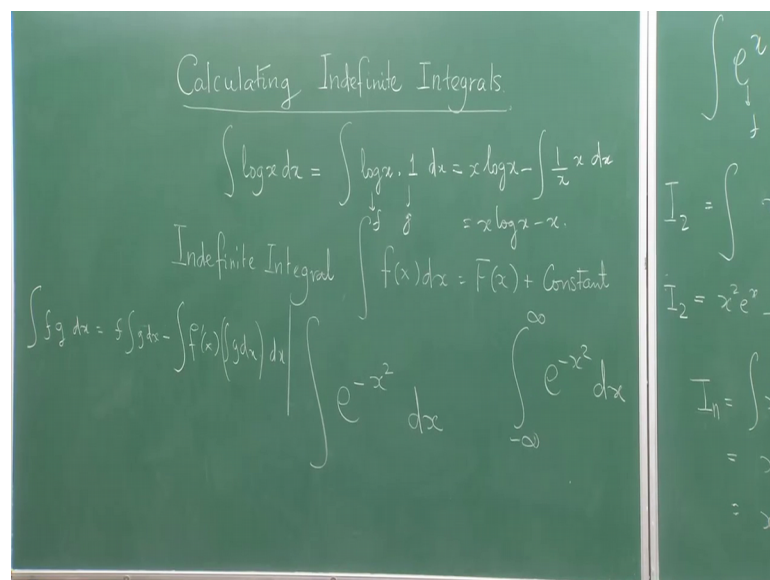 Calculating Indefinite Integrals
∫ log x dx = ∫ log x . 1 dx = x log x - ∫ 1/x x dx
↓ ↓
f g
= x log x - x.
Indefinite Integral ∫ f(x) dx = F(x) + Constant
∫ f g dx = f ∫ g dx - ∫ f'(x) (∫ g dx) dx
∫ e^{-x^2} dx
∫_{-∞}^{∞} e^{-x^2} dx
∫ e^x
↓
f
I_2 = ∫
I_2 = x^2 e^x -
I_n = ∫
=
=